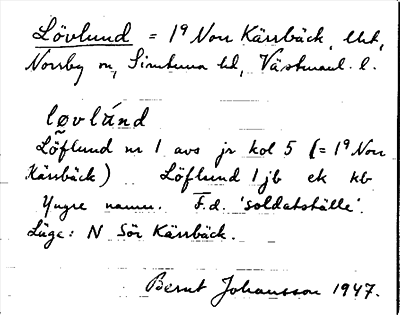 Lövlund = 1⁹ Norr Kärrbäck, Ut,
Norrby sn, Simtuna hd, Västmanl. l.
løvlánd
Löflund nr 1 avs jr kol 5 (= 1⁹ Norr
Kärrbäck) Löflund 1 jb ek kb
Yngre namn. F.d. 'soldatställe'.
Läge: N Sör Kärrbäck.
Bernt Johansson 1947.